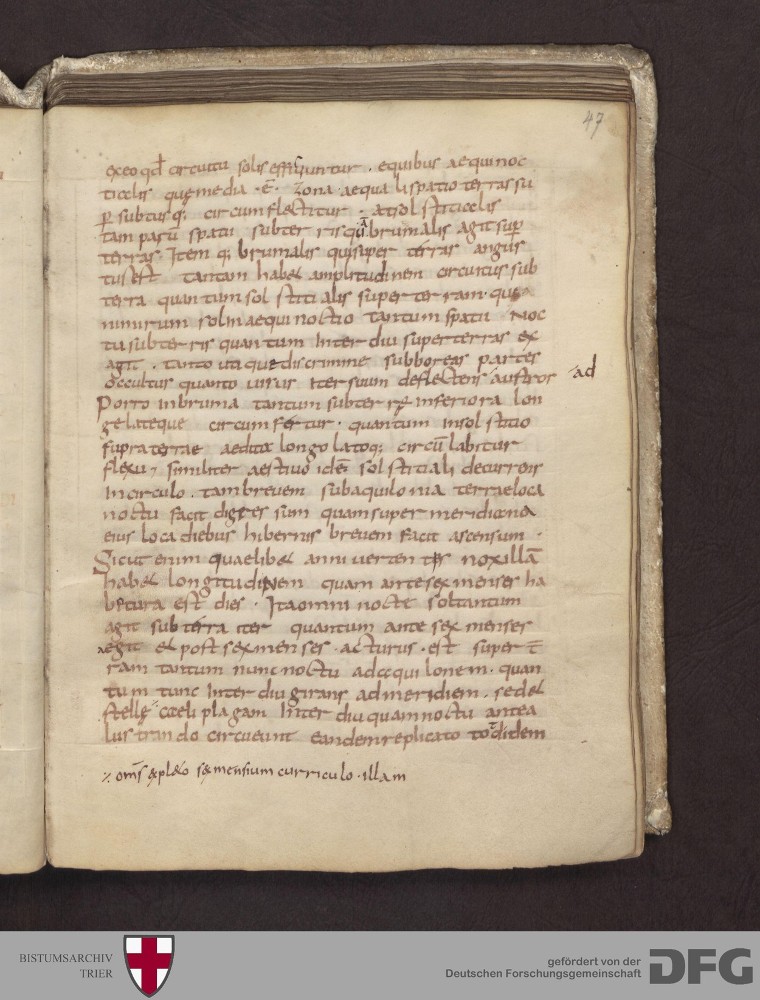 47
exeo qđ circuitu solis efficiuntur . equibus aequinoc
tialis quę media . ē . zona aequali spatio terras su
ꝑ subtusq; circum flectitur . at solstitialis
tam parū spatii subter ris quā brumalis agit suꝑ
terras . Item q; brumalis qui super terras angus
tus est tantam habet amplitudinem circuitus sub
terra quantum solstitialis super terram . quę
nimirum sol in aequinoctio tantum spatii noc
tu sub terris quantum inter diu super terras ex
agit . tanto utaque discrimine sub boreas partes
occultus quanto uisus iter suum deflectens austros
ad
Porro in bruma tantum subter inferiora lon
ge lateque circum fertur . quantum in sol stitio
supra terrae aedita longo latoq; circū labitur
flexu , similiter aestiuo idē solstitiali decurrens
In circulo . tam breuem sub aquilonia terrae loca
noctu facit digressum quam super meridiana
eius loca diebus hibernis breuem facit ascensum .
Sicut enim quaelibet anni uertentis nox illā
habet longitudinem quam ante sex menses ha
bitura est dies . Ita omni nocte sol tantum
agit sub terra iter quantum ante sex menses
aegit et post sex menses . acturus . est super t̄
ram tantum nunc noctu ad aquilonem . quan
tum tunc inter diu girans ad meridiem . sed et
stellę caeli plagam inter diu quam noctu antea
lustrando circueunt eandem replicato totidem
⁒ om̄s expleto sex mensium curriculo . illam
BISTUMSARCHIV
TRIER
gefördert von der
Deutschen Forschungsgemeinschaft
DFG